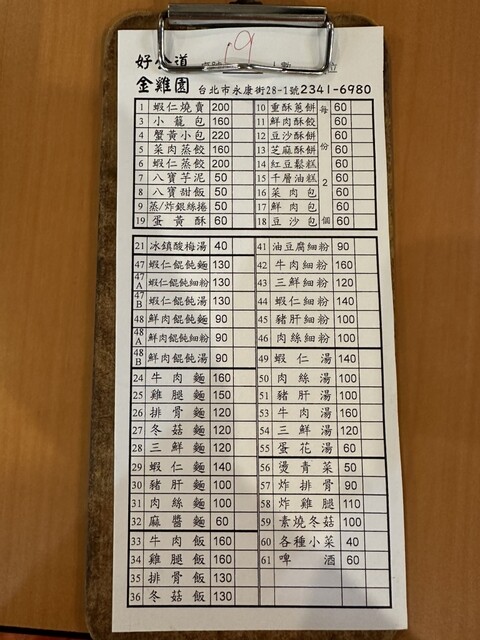 好公道 19
金雞園 台北市永康街28-1號2341-6980
1 蝦仁燒賣 200 10 重酥蔥餅 60
3 小籠包 160 11 鮮肉酥餃 60
4 蟹黃小包 220 12 豆沙酥餅 60
5 菜肉蒸餃 160 13 芝麻酥餅 60
6 蝦仁蒸餃 200 14 紅豆鬆糕 60
7 八寶芋泥 50 15 千層油糕 60
8 八寶甜飯 50 16 菜肉包 60
9 蒸/炸銀絲捲 50 17 鮮肉包 60
19 蛋黃酥 60 18 豆沙包 60
每份2個
21 冰鎮酸梅湯 40 41 油豆腐細粉 90
47 蝦仁餛飩麵 130 42 牛肉細粉 160
47A 蝦仁餛飩細粉 130 43 三鮮細粉 120
47B 蝦仁餛飩湯 130 44 蝦仁細粉 140
48 鮮肉餛飩麵 90 45 豬肝細粉 100
48A 鮮肉餛飩細粉 90 46 肉絲細粉 100
48B 鮮肉餛飩湯 90 49 蝦仁湯 140
24 牛肉麵 160 50 肉絲湯 100
25 雞腿麵 150 51 豬肝湯 100
26 排骨麵 120 53 牛肉湯 160
27 冬菇麵 120 54 三鮮湯 120
28 三鮮麵 120 55 蛋花湯 60
29 蝦仁麵 140 56 燙青菜 50
30 豬肝麵 100 57 炸排骨 90
31 肉絲麵 100 58 炸雞腿 110
32 麻醬麵 60 59 素燒冬菇 100
33 牛肉飯 160 60 各種小菜 40
34 雞腿飯 160 61 啤酒 60
35 排骨飯 130
36 冬菇飯 130